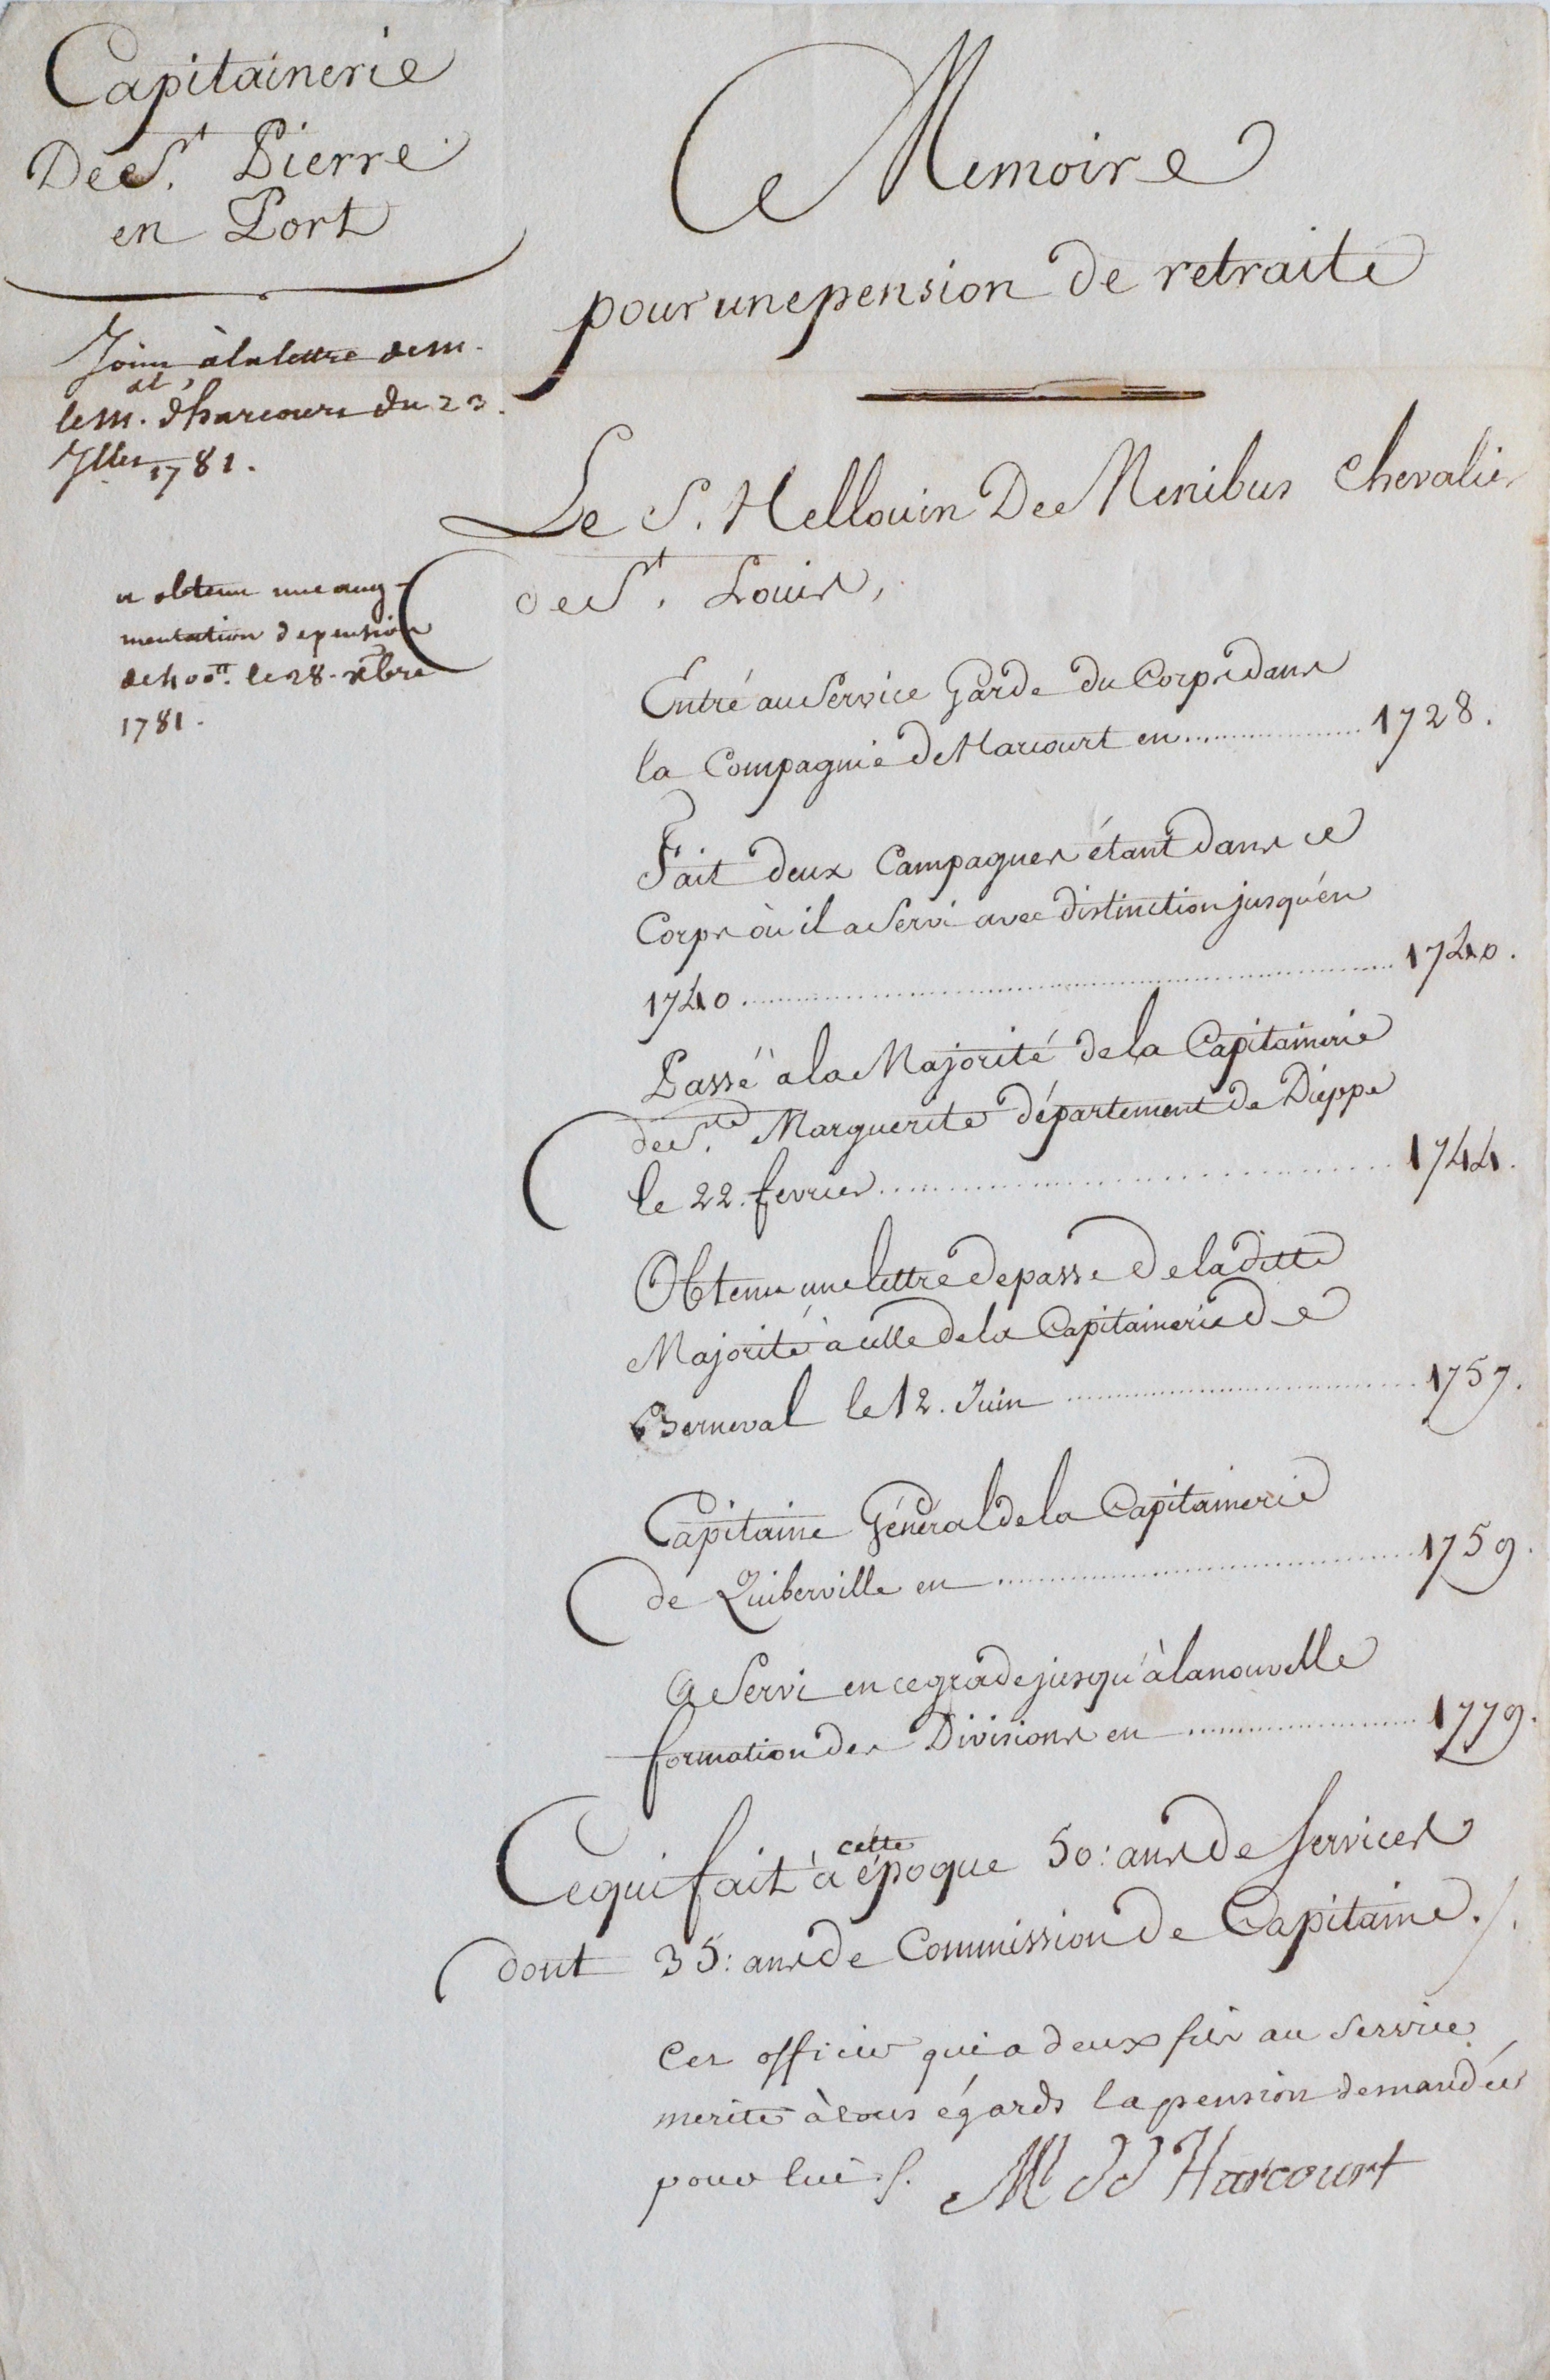 Capitainerie
De St. Pierre
en Port
Joint à la lettre de M.
le M.al d'harcourt du 23
Jllet 1781.
a obtenu une aug-
mentation de pension
de 400tt. le 28. xbre
1781.
Memoire
pour une pension de retraite
Le S. Hellouin De Menibus Chevalier
de St. Louis,
Entré au Service Garde du Corps dans
la Compagnie de Harcourt en ........ 1728.
Fait deux Campagnes étant dans ce
Corps où il a Servi avec distinction jusqu'én
1740 ........ 1740.
Passé à la Majorité de la Capitainerie
de Ste. Marguerite département de Dieppe
le 22. fevrier ........ 1744.
Obtenu une lettre de passe De la ditte
Majorité à celle de la Capitainerie de
Berneval le 12. Juin ........ 1757.
Capitaine Général de la Capitainerie
de Quiberville en ........ 1759.
A Servi en ce grade jusqu'à la nouvelle
formation des Divisions en ........ 1779.
Ce qui fait à cette époque 50: ans de Services
dont 35: ans de Commission de Capitaine./.
Cet officier qui a deux fils au Service
merite à tous égards la pension demandée
pour lui ./. Ml d d'Harcourt